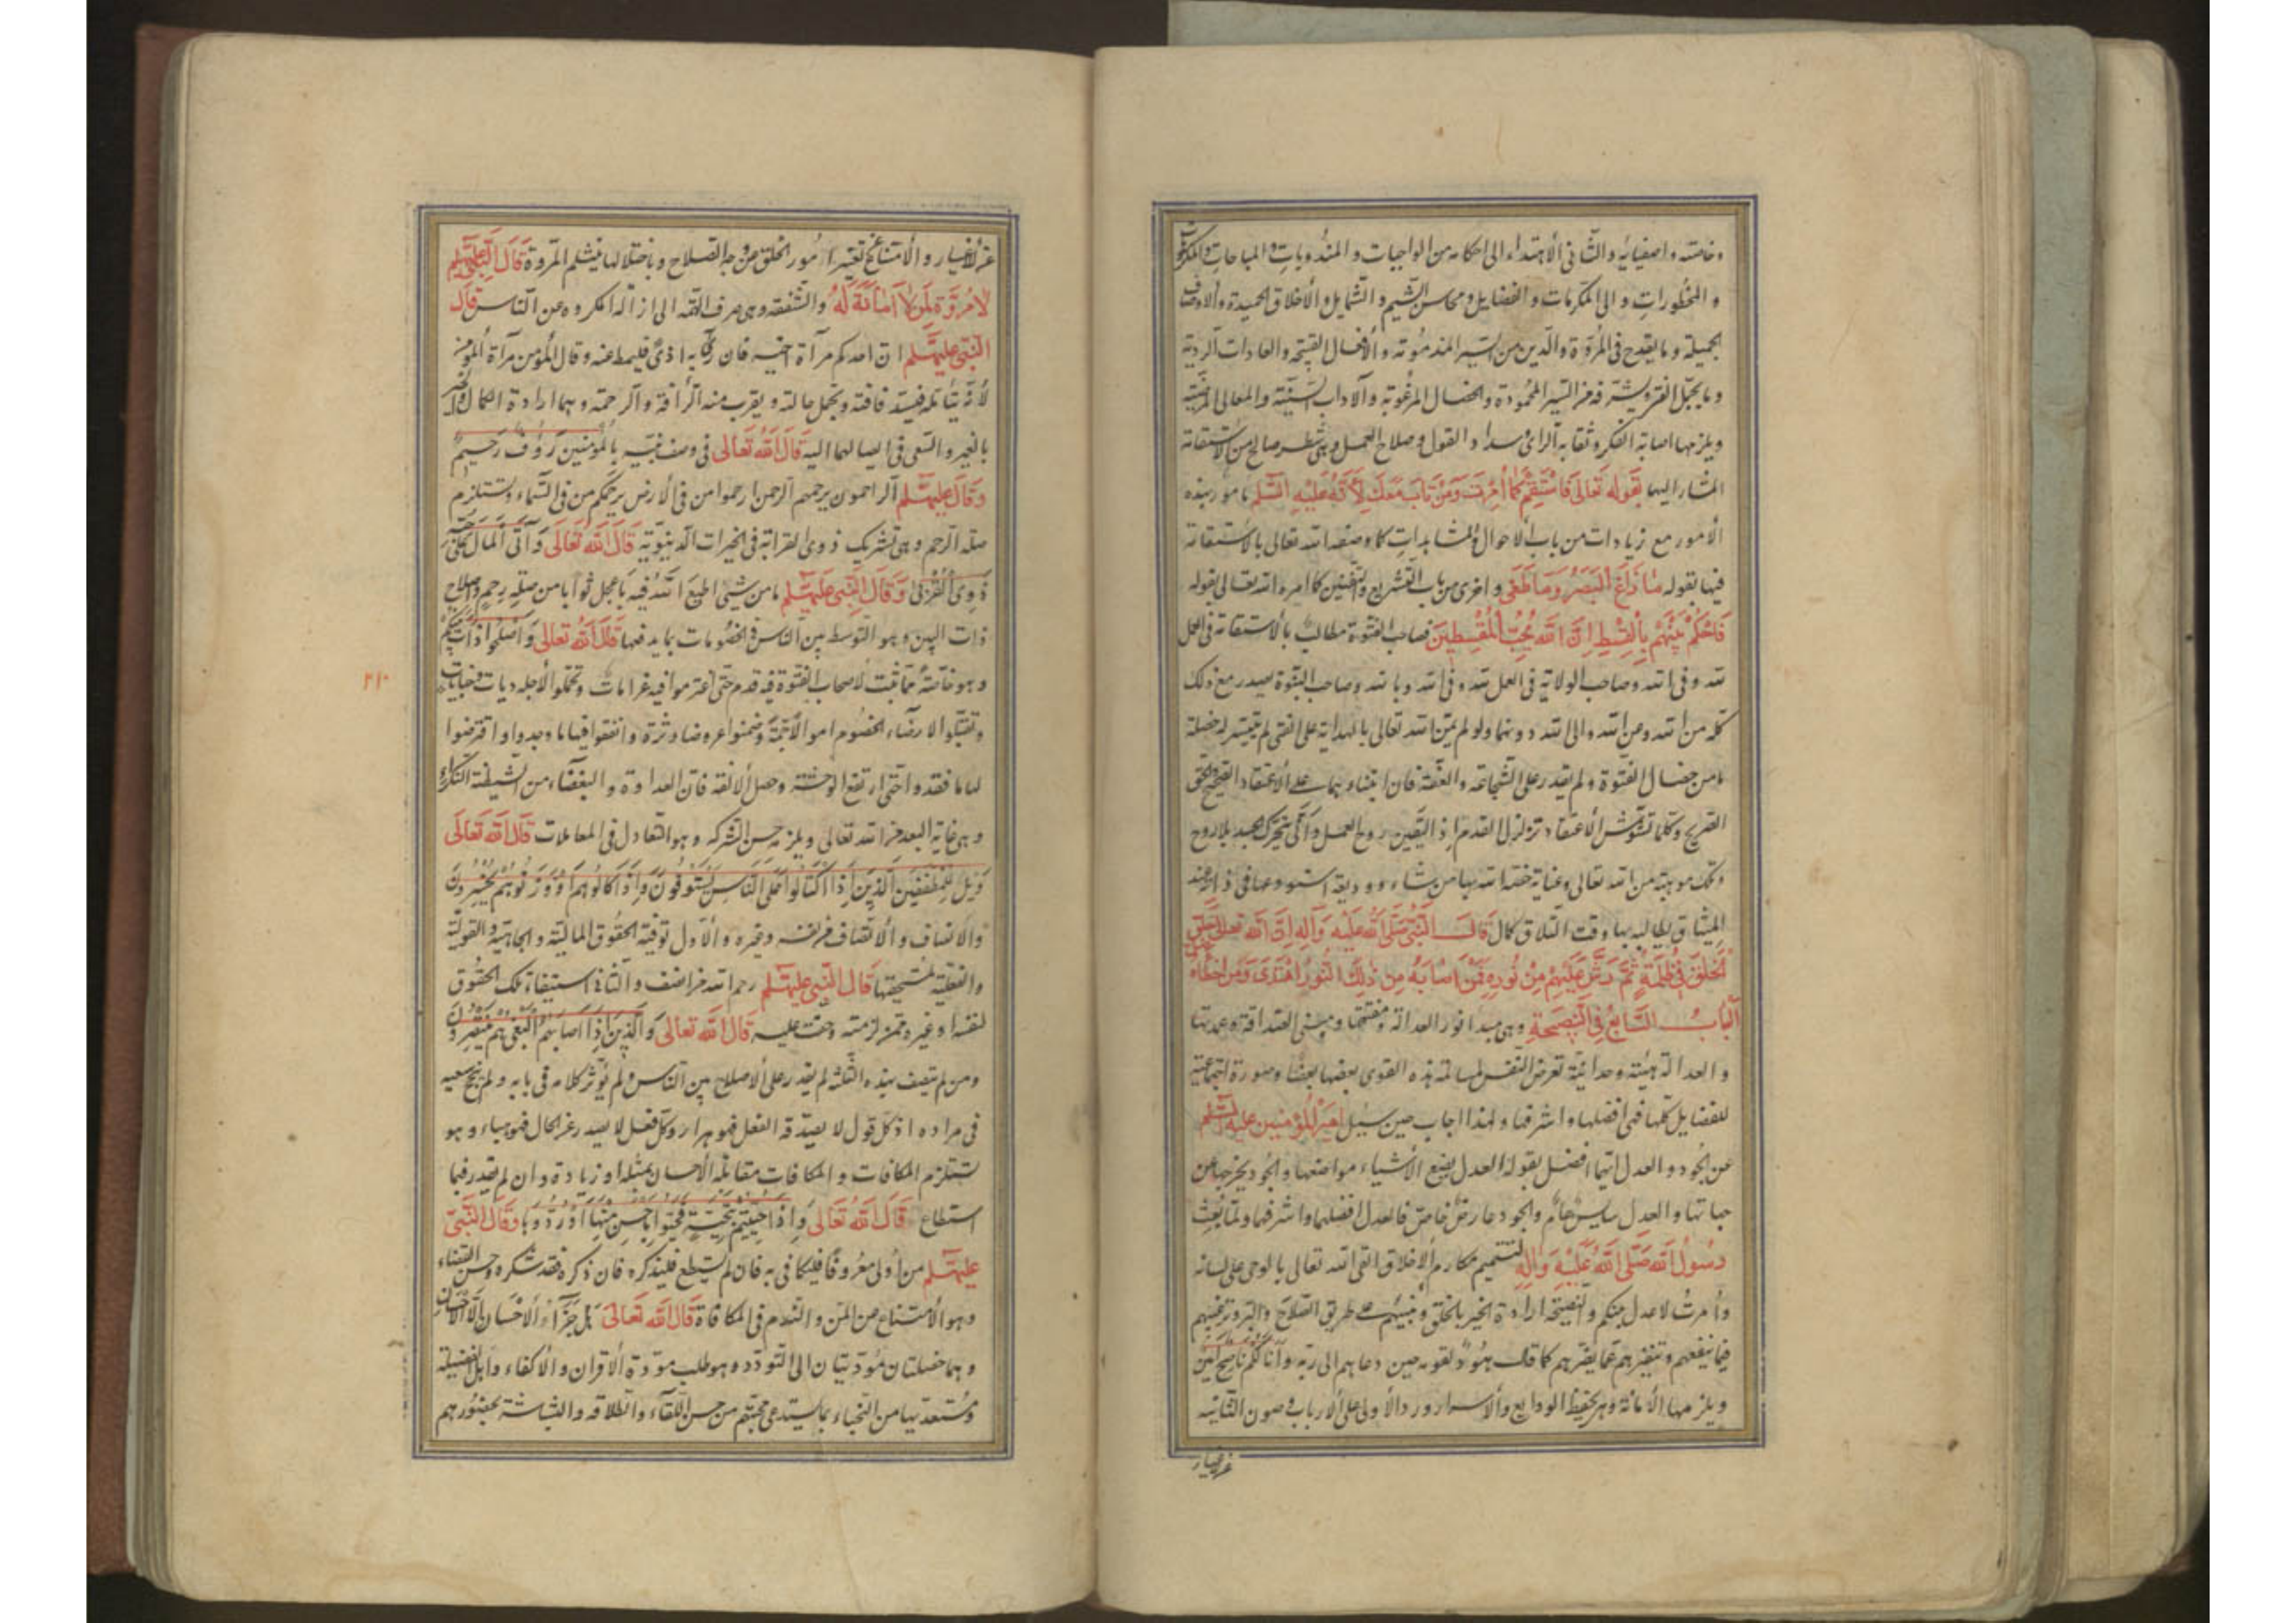 وخاصته واصفيائه والثانى الاهتداء الى احكامه من الواجبات والمندوبات والمباحات والمكروهات
والمحظورات والى المكرمات والفضايل ومحاسن الشيم والشمايل والاخلاق الحميدة والاوصاف
الجميلة وما يقدح فى المروّة والدين من السير المذمومة والافعال القبيحة والعادات الردية
وما يجمّل الفتى ويشرفه من السير المحمودة والخصال المرغوبة والآداب السنيّة والمعالى المرضية
ويلزمها اصابة الفكر وثقابة الراى وسداد القول وصلاح العمل وهى شطر صالح من الاستقامة
المشار اليها بقوله تعالى فاستقم كما امرت ومن تاب معك لانه عليه السلم مامور بهذه
الامور مع زيادات من باب الاحوال والمشاهدات كما وصفه الله تعالى بالاستقامة
فيها بقوله ما زاغ البصر وما طغى واخرى من باب التشريع والتقنين كما امره الله تعالى بقوله
فاحكم بينهم بالقسط ان الله يحب المقسطين فصاحب الفتوة مطالب بالاستقامة فى العمل
لله وفى الله وصاحب الولاية فى العمل لله وفى الله وبالله وصاحب النبوة يصدر مع ذلك
كله من الله ومن الله والى الله دونهما ولو لم يمنّ الله تعالى بالهداية على الفتى لم يتيسر له خصلة
ما من خصال الفتوة ولم يقدر على الشجاعة والعفة فان ابتناءهما على الاعتقاد الصحيح والحق
الصريح وكلما تشوش الاعتقاد تزلزل القدم اذ اليقين روح العمل وانّى يتحرك جسد بلا روح
وتلك موهبة من الله تعالى وعناية خصه الله بها من شاء ووديعة استودعها فى ذاته عند
الميثاق يطالبه بها وقت التلاق كما قال النبى صلى الله عليه وآله ان الله تعالى خلق
الخلق فى ظلمة ثم رش عليهم من نوره فمن اصابه من ذلك النور اهتدى ومن اخطاه ضل
الباب السابع فى النصيحة وهى مبدا نور العدالة ومفتتحها ومبنى الصداقة وعمدتها
والعدالة هيئة وحدانية تعرض النفس لمسالمة هذه القوى بعضها بعضا وصورة اجتماعية
للفضايل كلها فهى افضلها واشرفها ولهذا اجاب حين سئل امير المؤمنين عليه السلم
عن الجود والعدل ايهما افضل بقوله العدل يضع الاشياء مواضعها والجود يخرجها عن
جهاتها والعدل سايس عام والجود عارض خاص فالعدل افضلهما واشرفهما ولما بعث
رسول الله صلى الله عليه وآله لتتميم مكارم الاخلاق القى الله تعالى بالوحى على لسانه
وامرت لاعدل بينكم والنصيحة ارادة الخير بالخلق وتنبيههم على طريق الصلاح والبر وترغيبهم
فيما ينفعهم وتنفيرهم عما يضرهم كما قال هود لقومه حين دعاهم الى ربه وانا لكم ناصح امين
ويلزمها الامانة وهى حفظ الودايع والاسرار ورد الاولى على الارباب وصون الثانية
عن الاغيار
عن الاغيار والا امتناع تغير امور الخلق من وجه الصلاح وباختلالها ينثلم المروة قال النبى عليه السلم
لا مروّة لمن لا امانة له والشفقة وهى صرف الهمة الى ازالة المكروه عن الناس قال
النبى عليه السلم ان احدكم مرآة اخيه فان رأى به اذى فليمط عنه وقال المؤمن مرآة المؤمن
لانه يتأمله فيسد فاقته ويجمل حالته ويقرب منه الرأفة والرحمة وهما ارادة الكمال والخير
بالغير والسعى فى ايصالهما اليه قال الله تعالى فى وصف نبيه بالمؤمنين رؤف رحيم
وقال عليه السلم الراحمون يرحمهم الرحمن ارحموا من فى الارض يرحمكم من فى السماء وتستلزم
صلة الرحم وهى تشريك ذوى القرابة فى الخيرات الدنيوية قال الله تعالى وآتى المال على حبه
ذوى القربى وقال النبى عليه السلم ما من شئ اطيع الله فيه باعجل ثوابا من صلة رحم واصلاح
ذات البين وهو التوسط بين الناس فى الخصومات بما يدفعها قال الله تعالى واصلحوا ذات بينكم
وهو خاصة مما ثبت لاصحاب الفتوة فيه قدم حتى اغترموا فيه غرامات وتحملوا لاجله ديات وجنايات
وتقبلوا لارضاء الخصوم اموالا جمة وضمنوا عروضا وثروة وانفقوا فيها ما وجدوا واقترضوا
لها ما فقدوا حتى ارتفع الوحشة وحصل الالفة فان العداوة والبغضاء من الشيطنة النكراء
وهى غاية البعد من الله تعالى ويلزمه حسن الشركة وهو التعادل فى المعاملات قال الله تعالى
ويل للمطففين الذين اذا اكتالوا على الناس يستوفون واذا كالوهم او وزنوهم يخسرون
والانصاف والانتصاف من نفسه وغيره والاول توفية الحقوق المالية والجاهية والقولية
والفعلية لمستحقها قال النبى عليه السلم رحم الله من انصف والثانى استيفاء تلك الحقوق
لنفسه او غيره ممن لزمته وحقت عليه قال الله تعالى والذين اذا اصابهم البغى هم ينتصرون
ومن لم يتصف بهذه الثلثة لم يقدر على الاصلاح بين الناس ولم يؤثر كلامه فى بابه ولم ينجح سعيه
فى مراده اذ كل قول لا يصدقه الفعل فهو هراء وكل فعل لا يصدر عن الحال فهو هباء وهو
تستلزم المكافات والمكافات مقابلة الاحسان بمثله او زيادة وان لم يقدر فبما
استطاع قال الله تعالى واذا حييتم بتحية فحيوا باحسن منها او ردوها وقال النبى
عليه السلم من اولى معروفا فليكافى به فان لم يستطع فليذكره فان ذكره فقد شكره وحسن القضاء
وهو الامتناع من المن والندم فى المكافاة قال الله تعالى هل جزاء الاحسان الا الاحسان
وهما خصلتان مؤديتان الى التودد وهو طلب مودة الاقران والاكفاء واهل الفضيلة
والمستعد بها من النجباء بما يستدعى محبتهم من حسن اللقاء والطلاقة والبشاشة بحضورهم
٢١٠